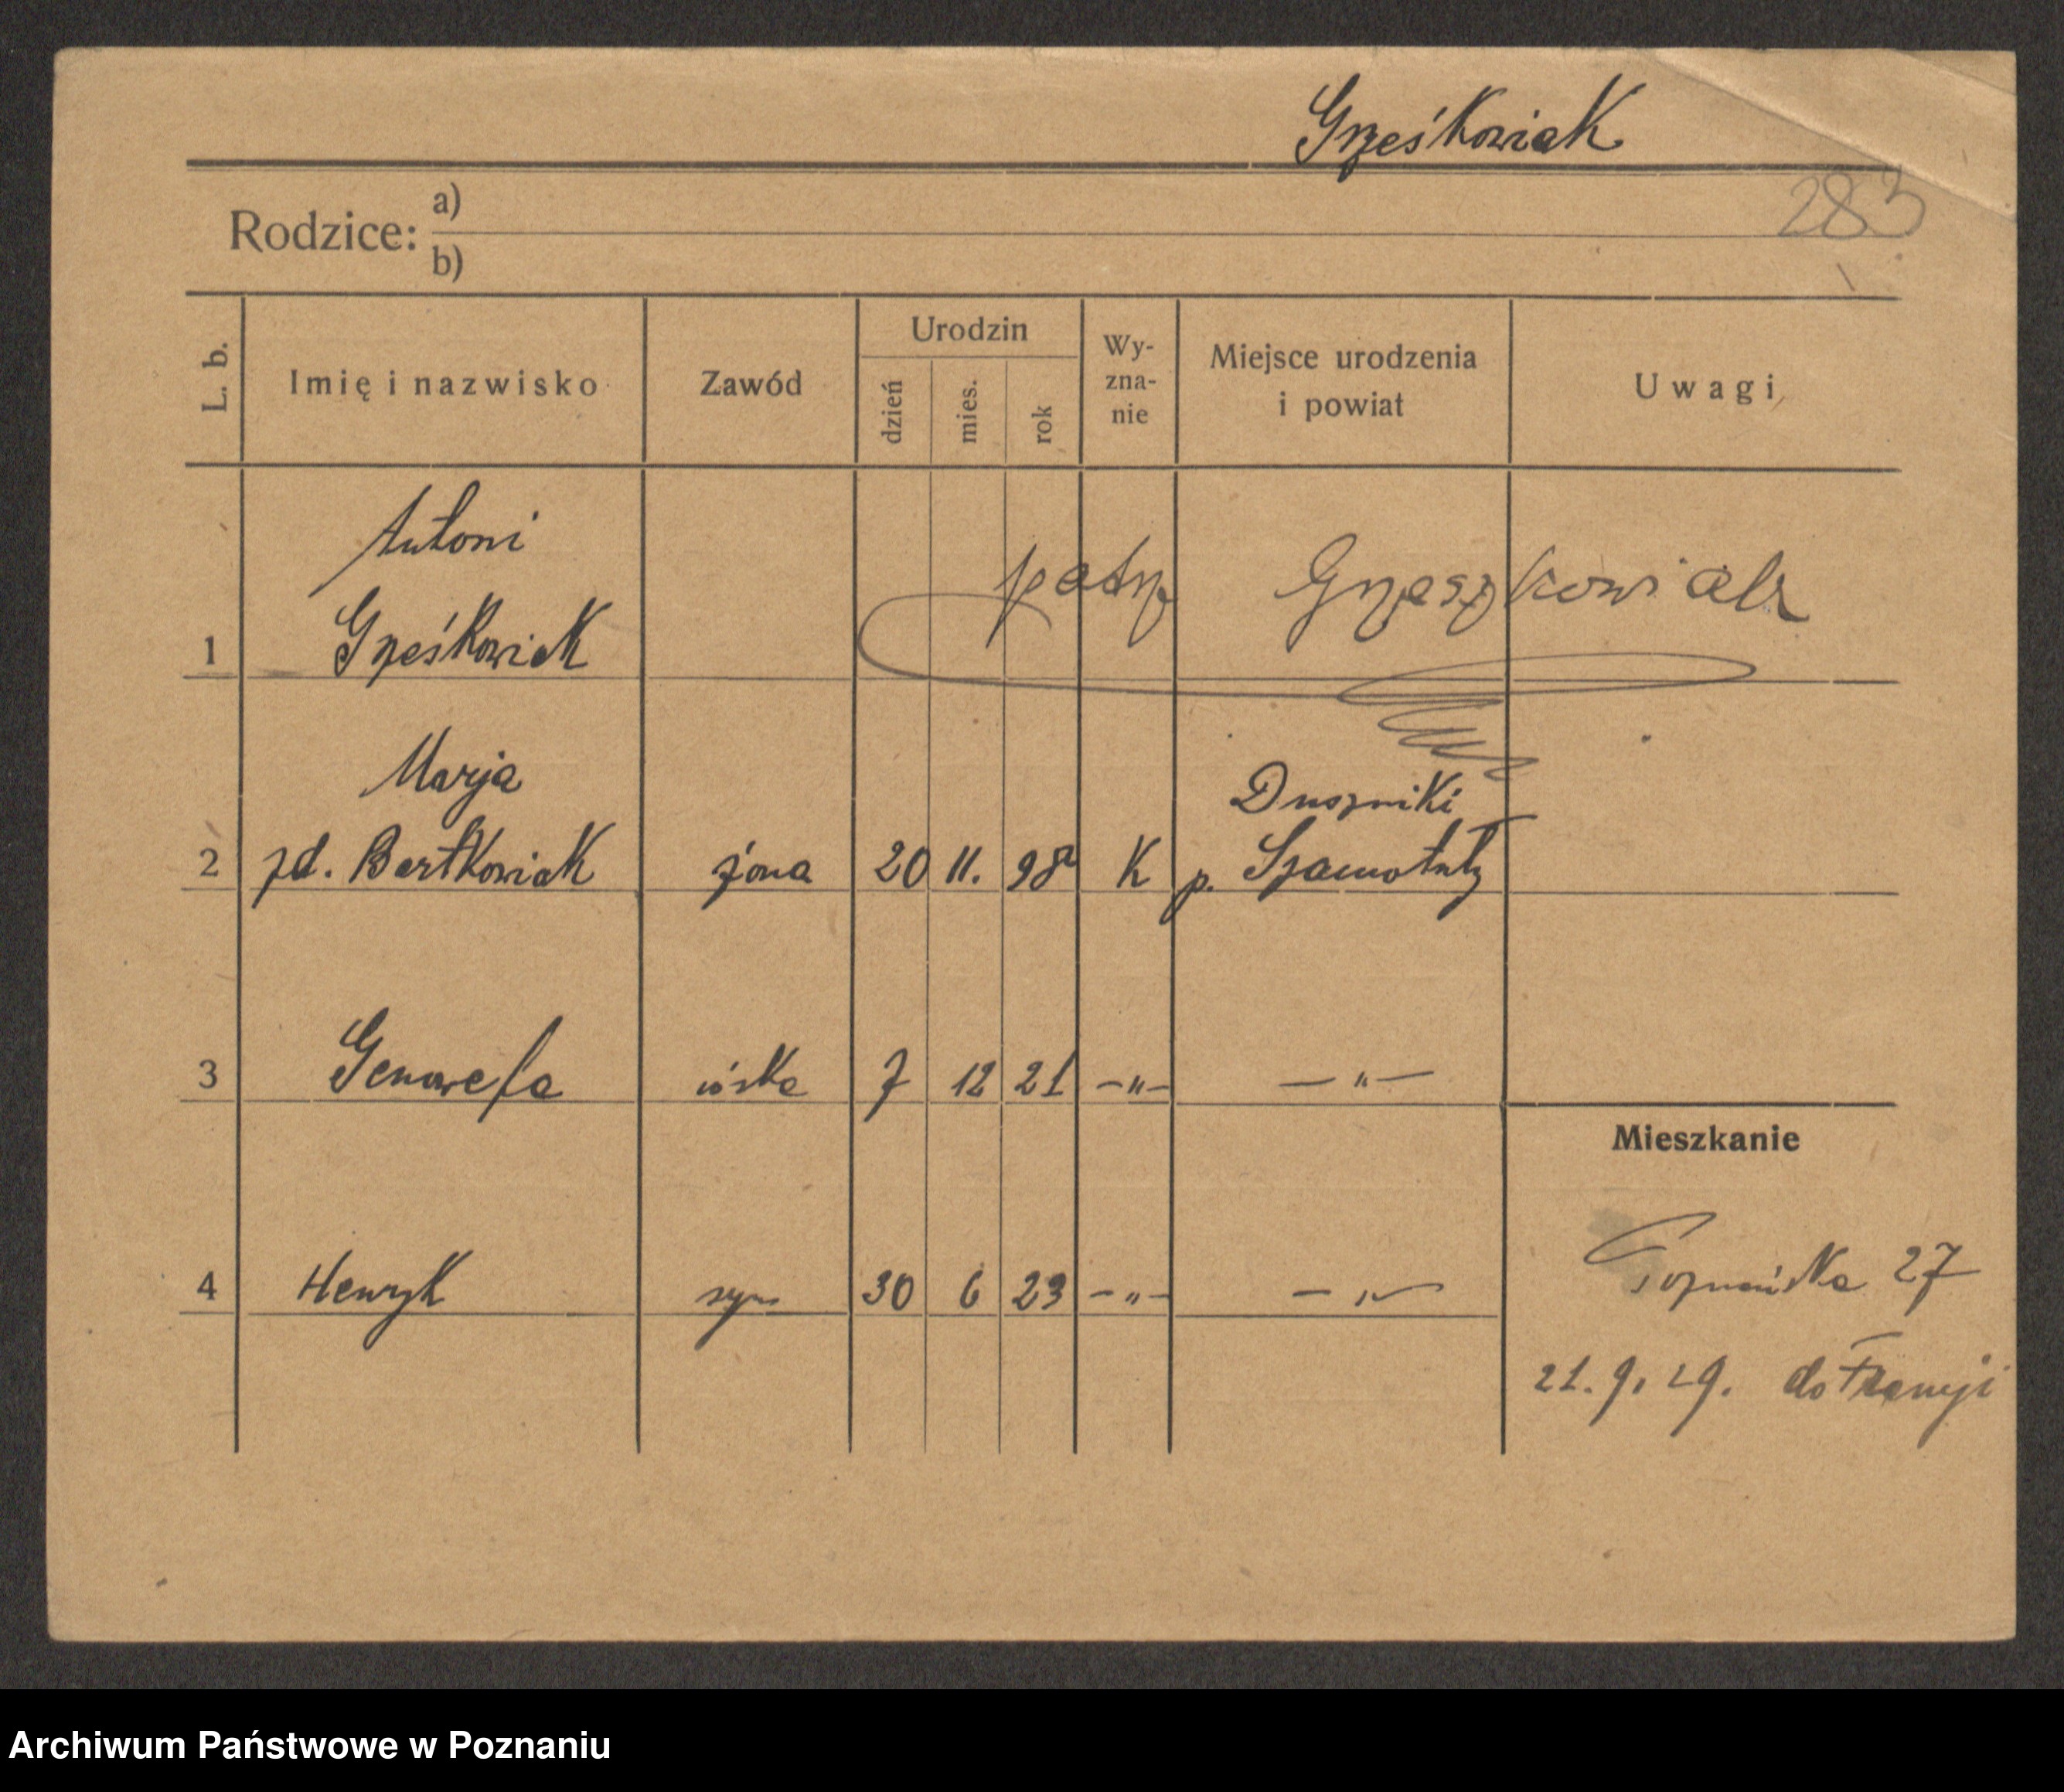 Grześkowiak
283
Rodzice: a)
b)
L. b. Imię i nazwisko Zawód Urodzin dzień mies. rok Wy-zna-nie Miejsce urodzenia i powiat Uwagi
Antoni
patrz Grzeszkowiak
1 Grześkowiak
Marja Duszniki
2 zd. Bartkowiak żona 20 11. 98 K p. Szamotuły
3 Genowefa córka 7 12 21 —"— —"—
Mieszkanie
4 Henryk syn 30 6 23 —"— —"— Poznańska 27
21. 9. 29. do Francji
Archiwum Państwowe w Poznaniu